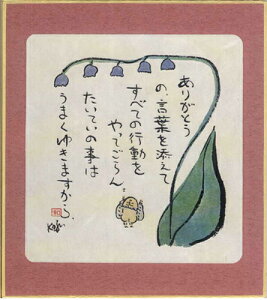 ありがとう
の、言葉を添えて
すべての行動を
やってごらん。
たいていの事は
うまくゆきますから。